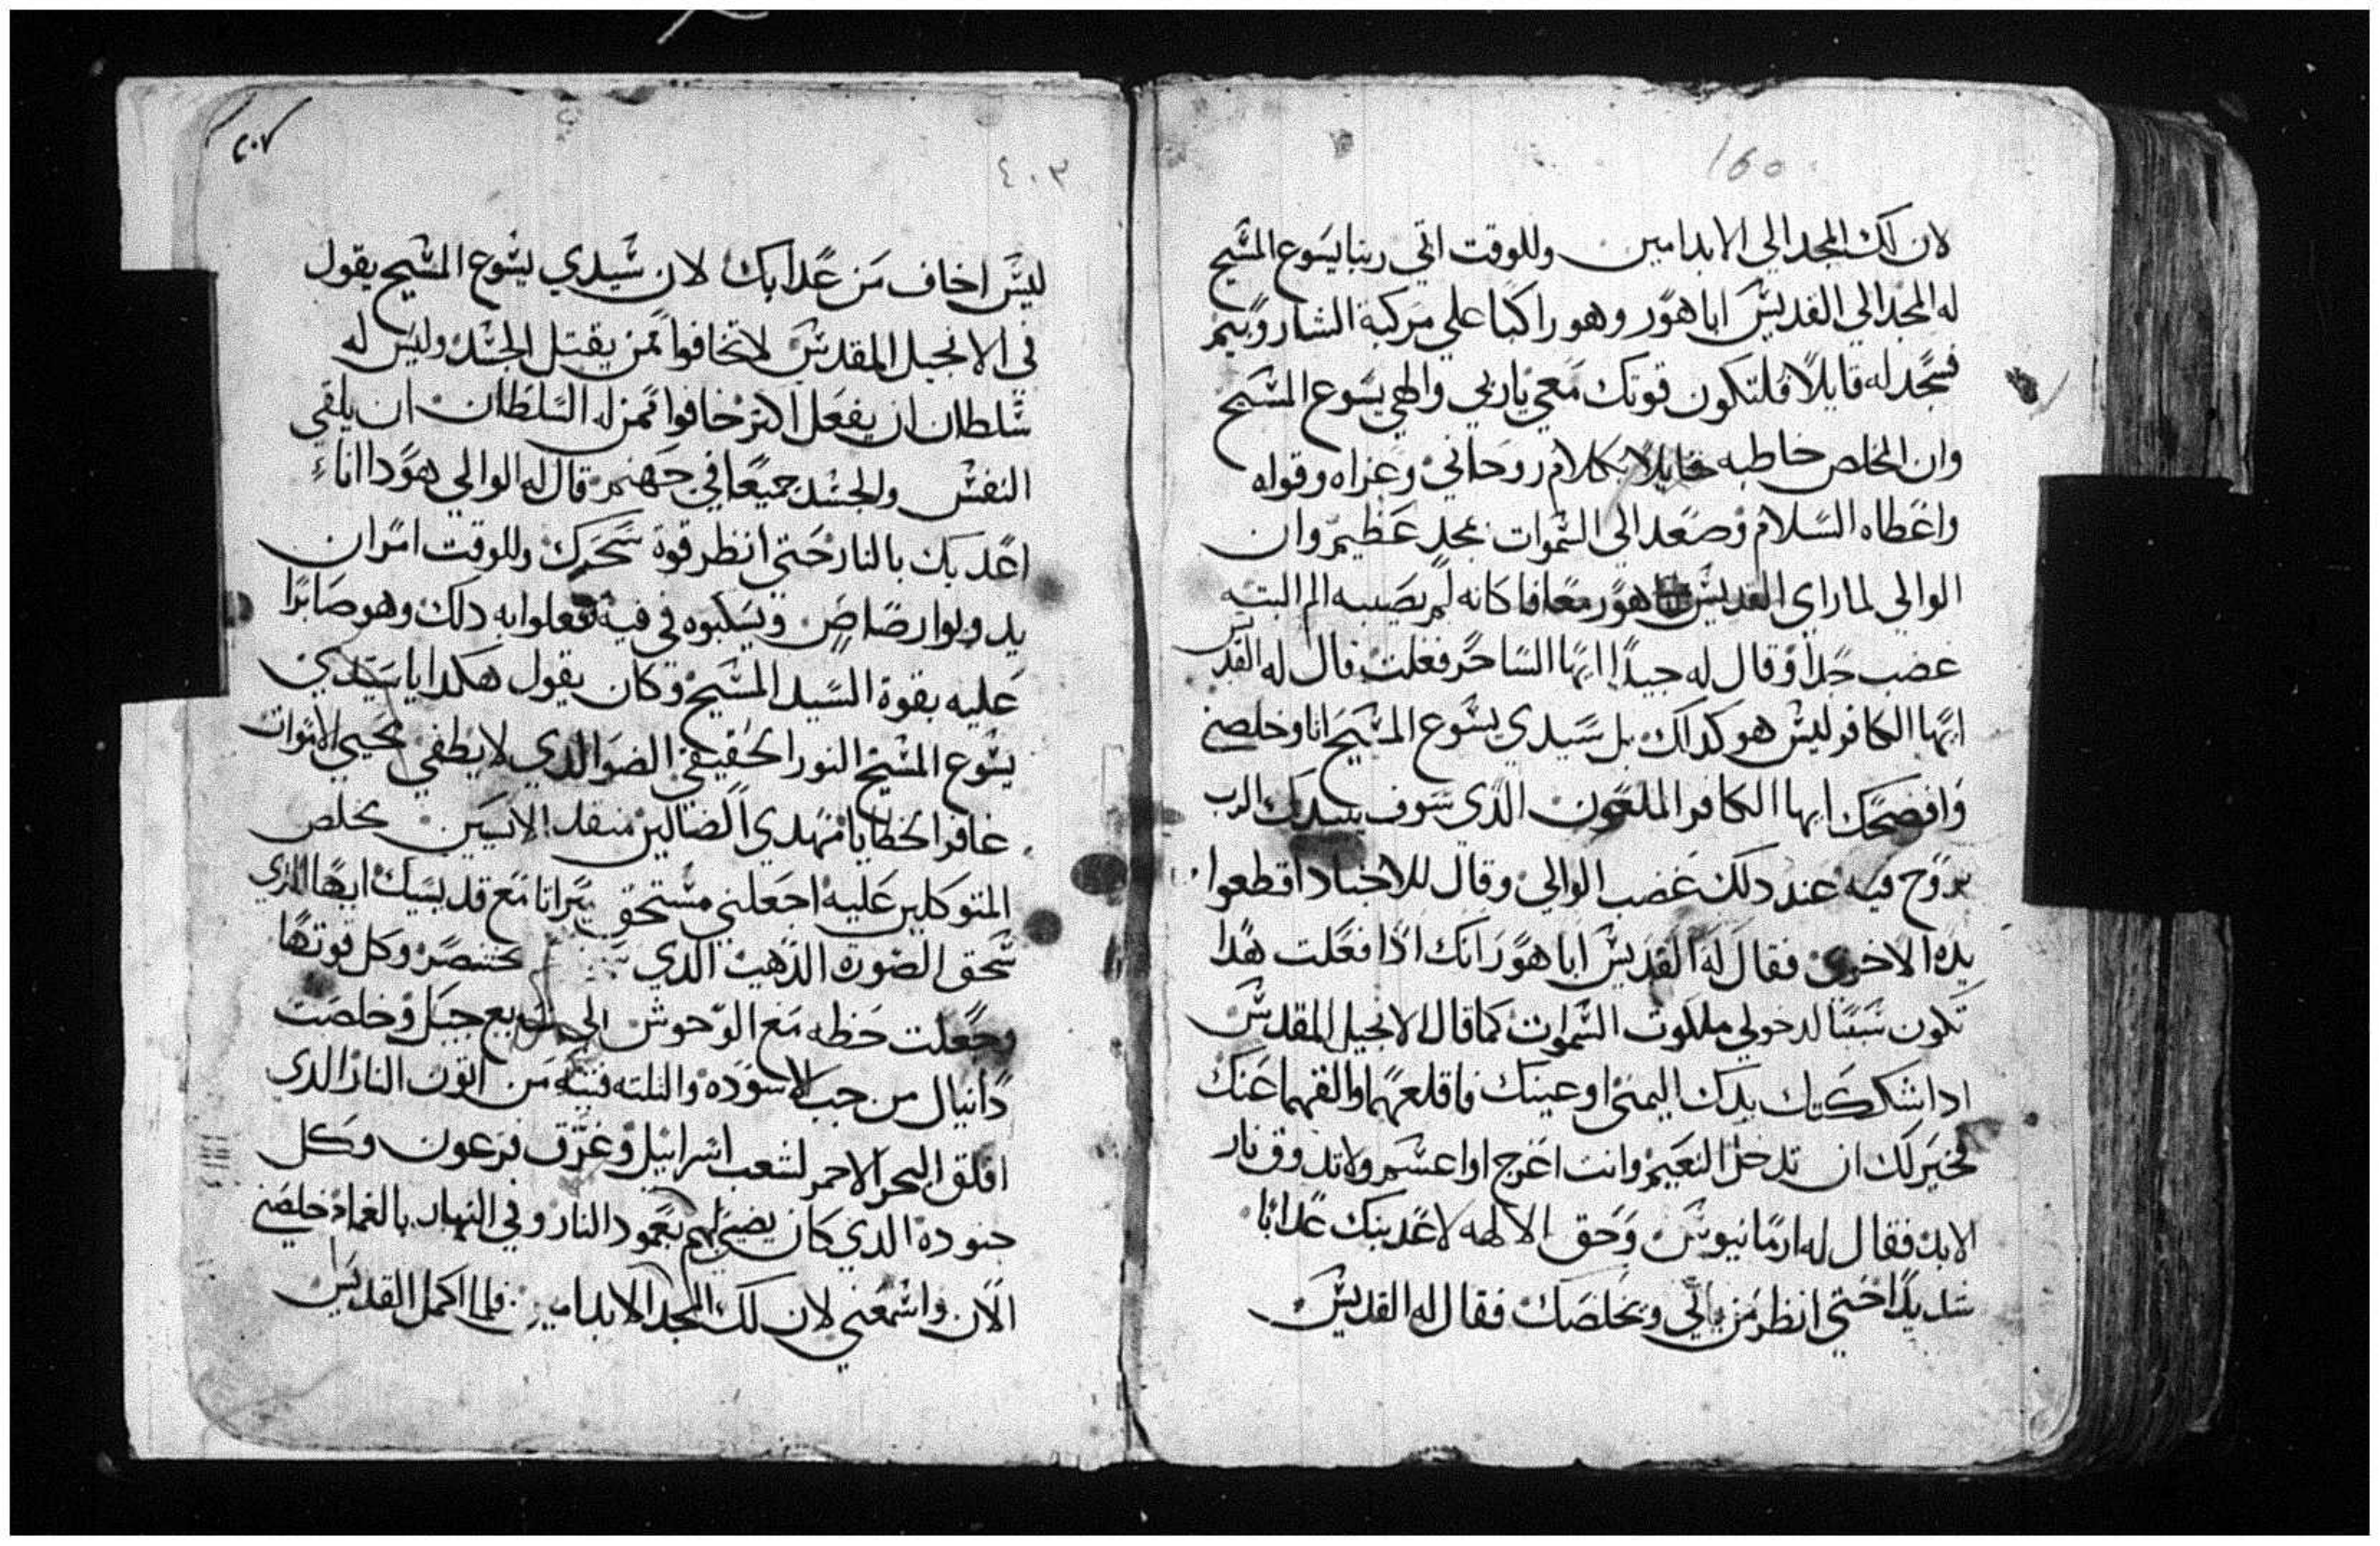 160
لان لك المجد الي الابد امين وللوقت اتي ربنا يسوع المسيح
له المجد الي القديس ابا هور وهو راكبا علي مركبة الشاروبيم
فسجد له قايلا فلتكون قوتك معي ياربي والهي يسوع المسيح
وان المخلص خاطبه قايلا بكلام روحاني وعزاه وقواه
واعطاه السلام وصعد الي السموات بمجد عظيم وان
الوالي لما راي القديس ابا هور معافا كانه لم يصيبه الم البته
غضب جدا وقال له جيدا ايها الساحر فعلت قال له القديس
ايها الكافر ليس هو كداك بل سيدي يسوع المسيح اتا وخلصني
وافضحك ايها الكافر الملعون الذي سوف يبيدك الرب
بروح فيه عند دلك غضب الوالي وقال للاجناد اقطعوا
يده الاخري فقال له القديس ابا هور انك اذا فعلت هدا
تكون سببا لدخولي ملكوت السموات كما قال الانجيل المقدس
ادا شككتك يدك اليمني او عينك فاقلعهما والقهما عنك
فخير لك ان تدخل النعيم وانت اعرج او اعسم ولا تدوق نار
الابد فقال له ارمانيوس وحق الالهه لاعدبنك عدابا
شديدا حتي انظر من ياتي ويخلصك فقال له القديس
٢٠٧
٤٠٣
ليس اخاف من عدابك لان سيدي يسوع المسيح يقول
في الانجيل المقدس لا تخافوا ممن يقتل الجسد وليس له
سلطان ان يفعل اكتر خافوا ممن له السلطان ان يلقي
النفس والجسد جميعا في جهنم قال له الوالي هودا انا
اعدبك بالنار حتي انظر قوة سحرك وللوقت امر ان
يدوبوا رصاص ويسكبوه في فيه ففعلوا به دلك وهو صابرا
عليه بقوة السيد المسيح وكان يقول هكدا يا سيدي
يسوع المسيح النور الحقيقي الضو الدي لا يطفي محيي الاموات
غافر الخطايا مهدي الضالين منقد الايسين مخلص
المتوكلين عليه اجعلني مستحق ميراتا مع قديسيك ايها الذي
سحق الصورة الذهب الدي بختنصر وكل قوتها
وجعلت حظه مع الوحوش الي سبع جبل وخلصت
دانيال من جب الاسوده والتلته فتيه من اتون النار الدي
افلق البحر الاحمر لشعب اسرائيل وغرق فرعون وكل
جنوده الدي كان يضيئ لهم بعمود النار وفي النهار بالغمام خلصني
الان واسمعني لان لك المجد الابد امين فلما اكمل القديس